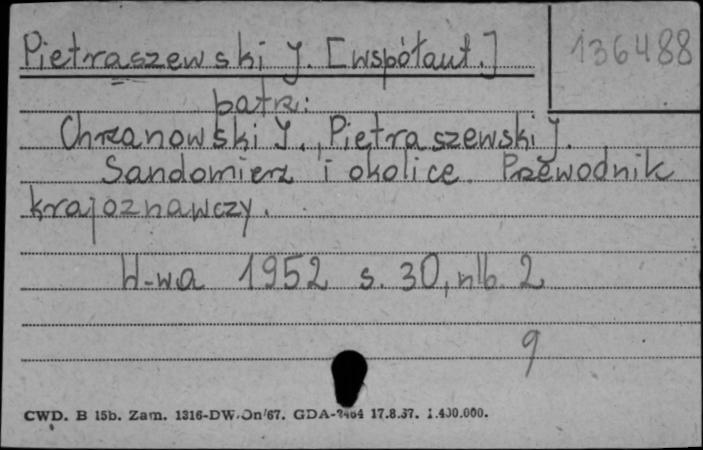 136488
Pietraszewski J. [współaut.]
patrz:
Chrzanowski J., Pietraszewski J.
Sandomierz i okolice. Przewodnik
krajoznawczy.
W-wa 1952 s. 30, nlb. 2
9
CWD. B 15b. Zam. 1316-DW-On/67. GDA-2464 17.8.67. 1.400.000.